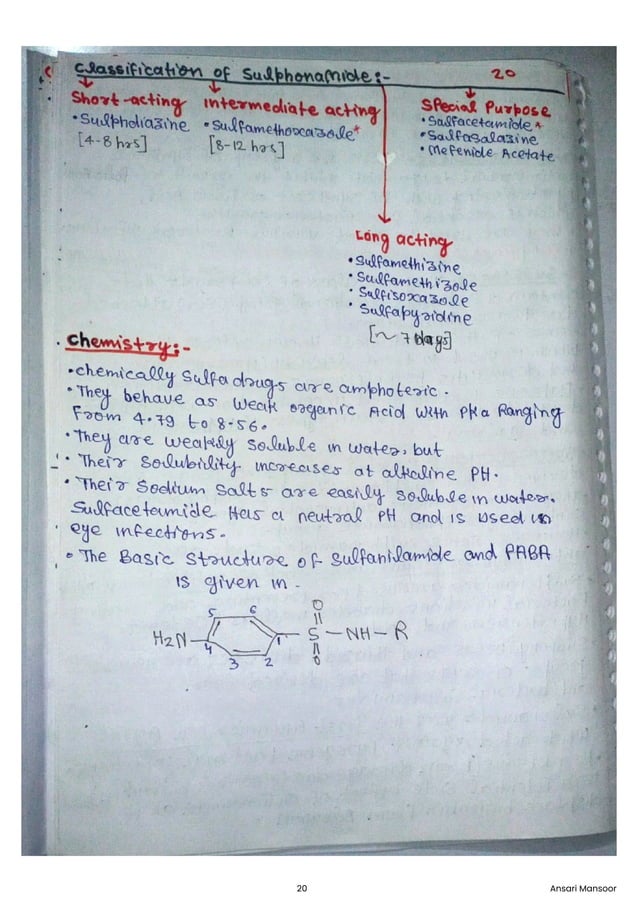 Classification of Sulphonamide:-
20
Short-acting
• Sulphdiazine
[4-8 hrs]
Intermediate acting
• Sulfamethoxazole*
[8-12 hrs]
Special Purpose
• Sulfacetamide*
• Sulfasalazine
• Mefenide Acetate
Long acting
• Sulfamethizine
• Sulfamethizole
• Sulfisoxazole
• Sulfapyridine
[~ 7 days]
• Chemistry:-
• chemically Sulfa drugs are amphoteric.
• They behave as weak organic Acid with PKa Ranging
From 4.79 to 8.56.
• They are weakly soluble in water, but
• Their Solubility increases at alkaline PH.
• Their Sodium Salts are easily soluble in water.
Sulfacetamide Has a neutral PH and is used in
eye infections.
• The Basic Structure of Sulfanilamide and PABA
is given in.
H2N
4
5
6
1
2
3
O
S
O
NH-R
20
Ansari Mansoor